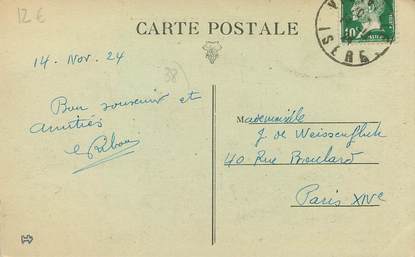 12 €
CARTE POSTALE
14 . Nov. 24
38
Bon souvenir et
amitiés
Mademoiselle
J. de Weissenfluh
40 Rue Boulard
Paris XIVe
10c
ISERE